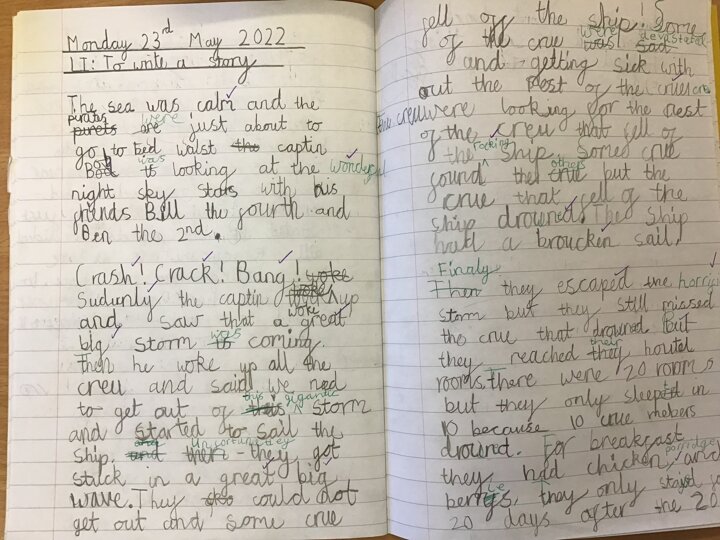 Monday 23rd May 2022
LI: To write a story
The sea was calm and the
pirates were just about to
go to bed walst captin
Bob was looking at the wonderful
night sky stars with his
friends Bill the fourth and
Ben the 2nd.
Crash! Crack! Bang!
Sudunly the captin woke up
and saw that a great
big storm was coming.
Then he woke up all the
creu and said we ned
to get out of this gigantic storm
and started to sail the
ship. Unfortunatley they got
stuck in a great big
wave. They could not
get out and some crue
fell of the ship! Some
of the crue were
and getting sick with
out the rest of the crue
the creu were looking for the rest
of the creu that fell of
the rocking ship. Some crue
found the others but the
crue that fell of the
ship drouned. The ship
had a broucken sail.
Finaly
they escaped the
storm but they still missed
the crue that drouned. But
they reached their houtel
rooms. there were 20 rooms
but they only sleeped in
10 because 10 crue mebers
drouned. For breakfast
they had chicken, porridge and
berrys, they only stayed
20 days after the 20